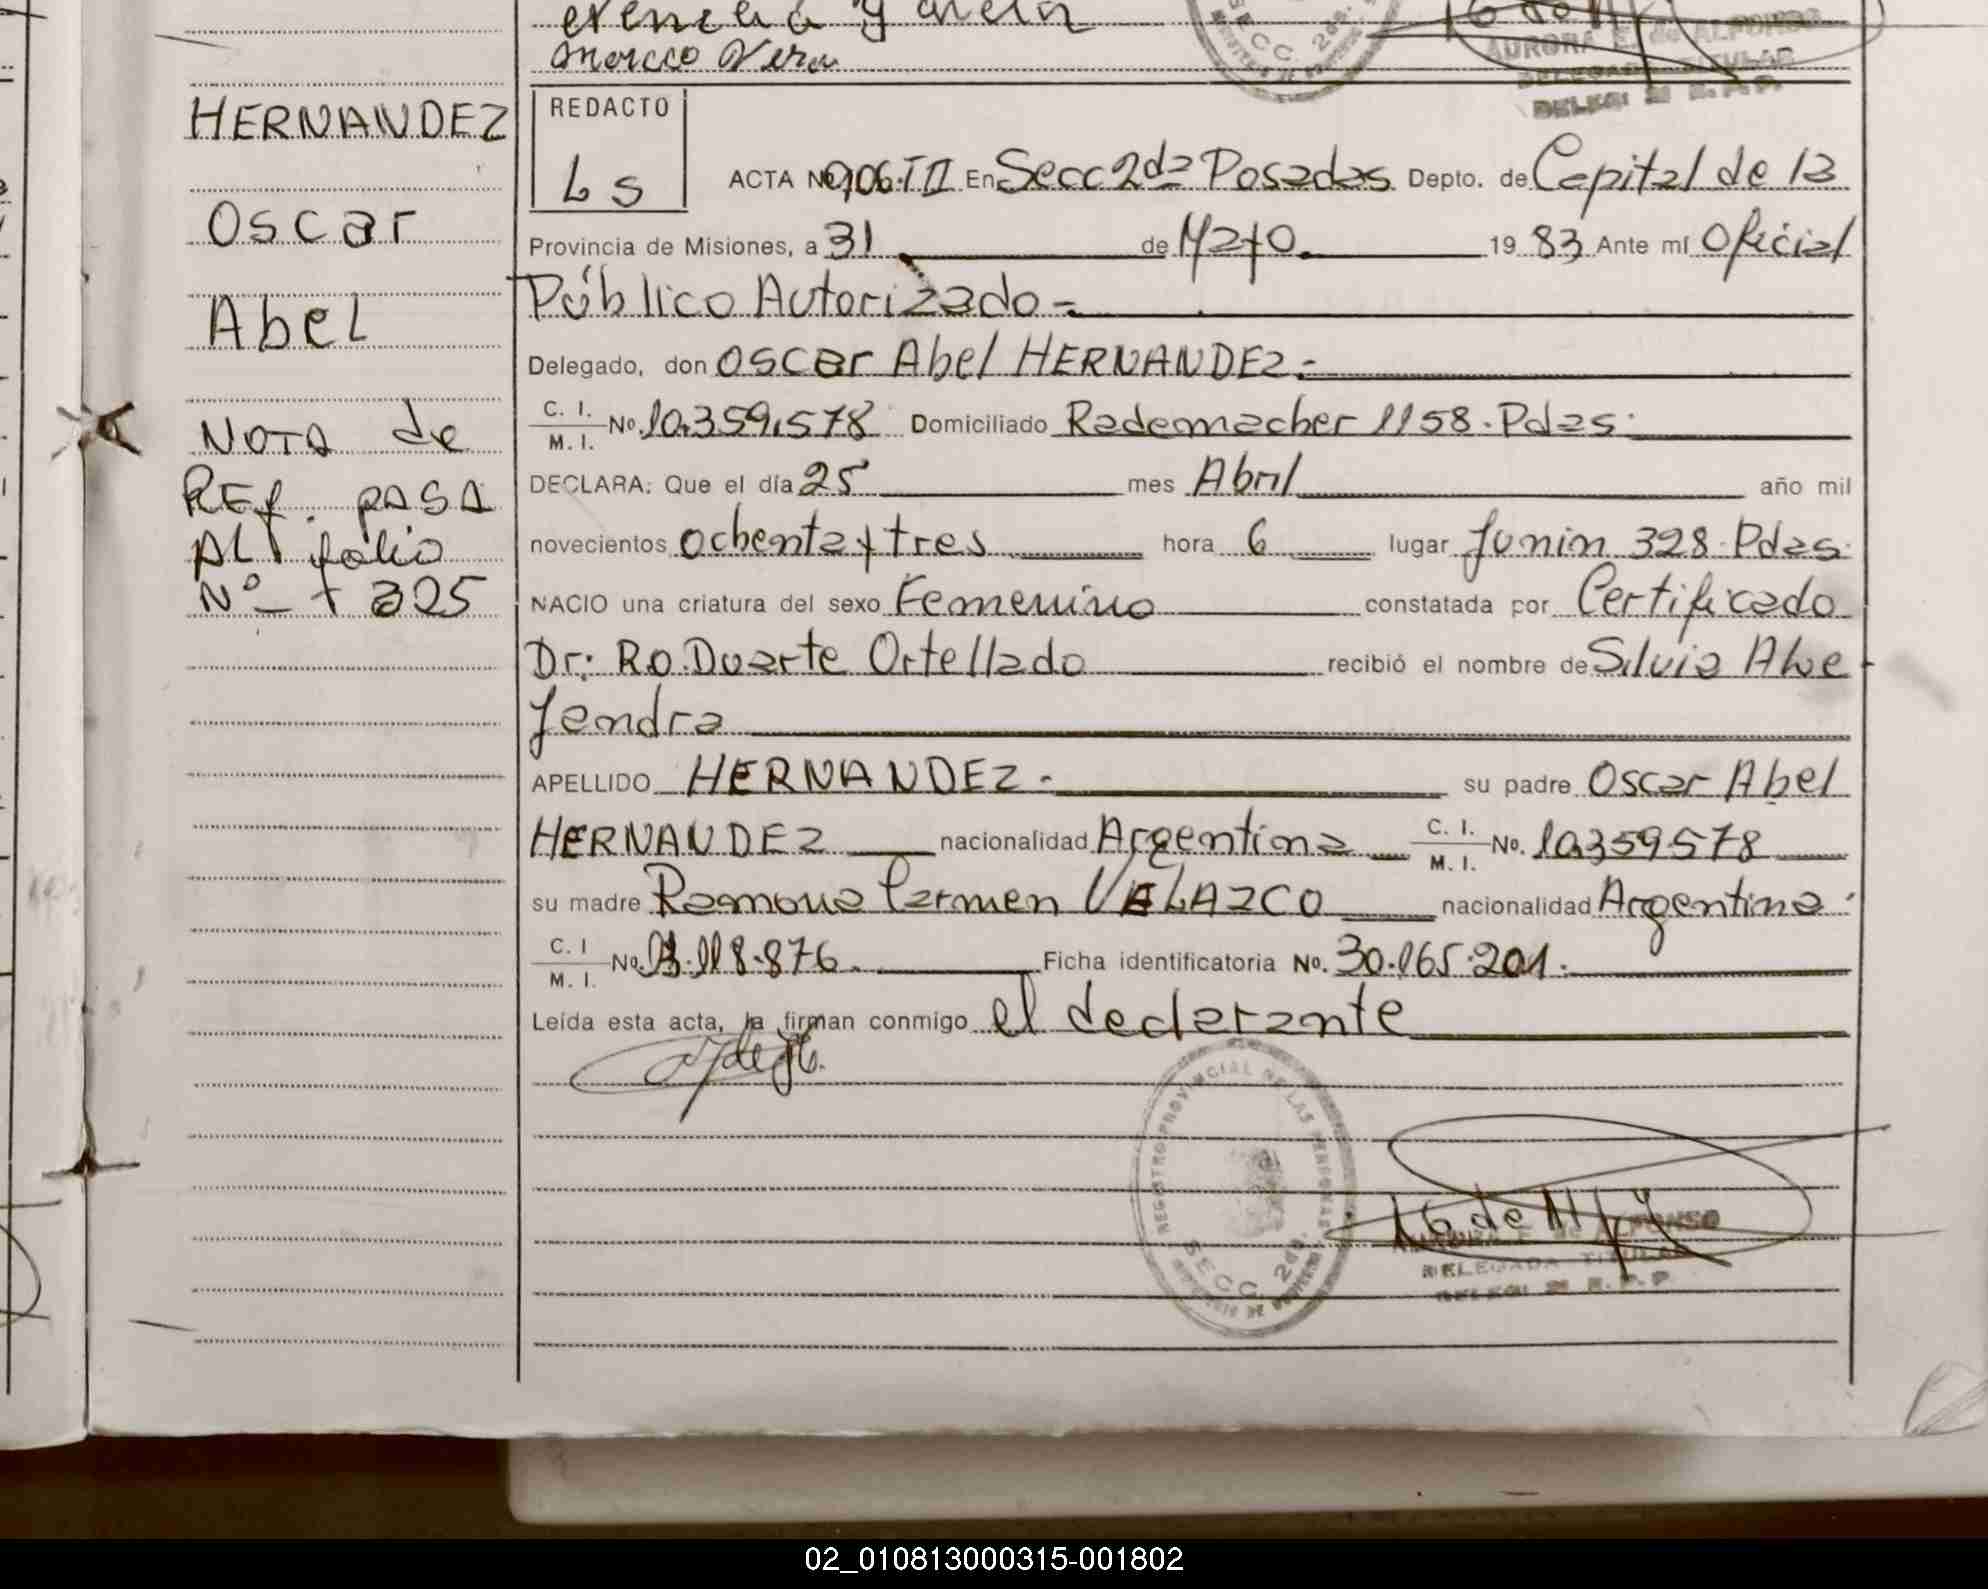 Marcco Vera
AURORA E. de ALFONSO
DELEGADA TITULAR
HERNANDEZ
Oscar
Abel
NOTA de
REf. PASA
AL folio
Nº 325
REDACTO
Ls
ACTA Nº 906-TII En Secc 2da Posadas Depto. de Capital de la
Provincia de Misiones, a 31 de Mayo 1983 Ante mí Oficial
Público Autorizado
Delegado, don Oscar Abel HERNANDEZ
C. I.
M. I. No. 10.359.578 Domiciliado Rademacher 1158. Pdas
DECLARA: Que el día 25 mes Abril año mil
novecientos ochenta y tres hora 6 lugar Junin 328. Pdas
NACIO una criatura del sexo Femenino constatada por Certificado
Dr: R.O. Duarte Ortellado recibió el nombre de Silvia Ale
jandra
APELLIDO HERNANDEZ su padre Oscar Abel
HERNANDEZ nacionalidad Argentina C. I. M. I. No. 10.359.578
su madre Ramona Carmen VELAZCO nacionalidad Argentina
C. I
M. I. No. 118.876 Ficha identificatoria No. 30.165.201
Leída esta acta, la firman conmigo el declarante
REGISTRO PROVINCIAL DE LAS PERSONAS
SECC. 2da.
AURORA E. de ALFONSO
DELEGADA TITULAR
02_010813000315-001802